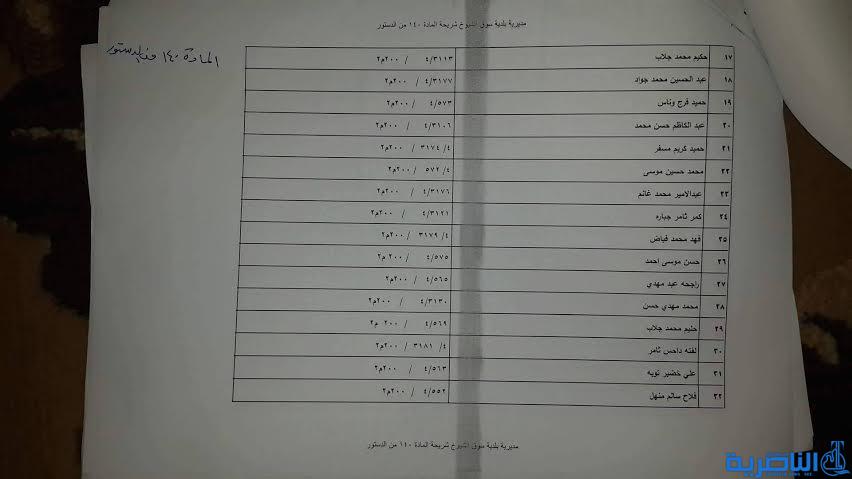 مديرية بلدية سوق الشيوخ شريحة المادة ١٤٠ من الدستور
المادة ١٤٠ من الدستور
١٧ حكيم محمد جلاب ٤/٣١١٣ / ٢٠٠م٢
١٨ عبد الحسين محمد جواد ٤/٣١٧٧ / ٢٠٠م٢
١٩ حميد فرج وناس ٤/٥٧٣ / ٢٠٠م٢
٢٠ عبد الكاظم حسن محمد ٤/٣١٠٦ / ٢٠٠م٢
٢١ حميد كريم مسفر ٤/ ٣١٧٤ / ٢٠٠م٢
٢٢ محمد حسين موسى ٤/ ٥٧٢ / ٢٠٠م٢
٢٣ عبدالامير محمد غانم ٤/٣١٧٦ / ٢٠٠م٢
٢٤ كمر ثامر جباره ٤/٣١٢١ / ٢٠٠م٢
٢٥ فهد محمد فياض ٤/ ٣١٧٩ / ٢٠٠م٢
٢٦ حسن موسى احمد ٤/٥٧٥ / ٢٠٠ م٢
٢٧ راجحه عبد مهدي ٤/٥٦٥ / ٢٠٠م٢
٢٨ محمد مهدي حسن ٤/٣١٣٠ / ٢٠٠م٢
٢٩ حليم محمد جلاب ٤/٥٦٩ / ٢٠٠ م٢
٣٠ لفته داحس ثامر ٤/ ٣١٨١ / ٢٠٠م٢
٣١ علي خضير توبه ٤/٥٦٣ / ٢٠٠م٢
٣٢ فلاح سالم منهل ٤/٥٥٢ / ٢٠٠م٢
مديرية بلدية سوق الشيوخ شريحة المادة ١٤٠ من الدستور
الناصرية